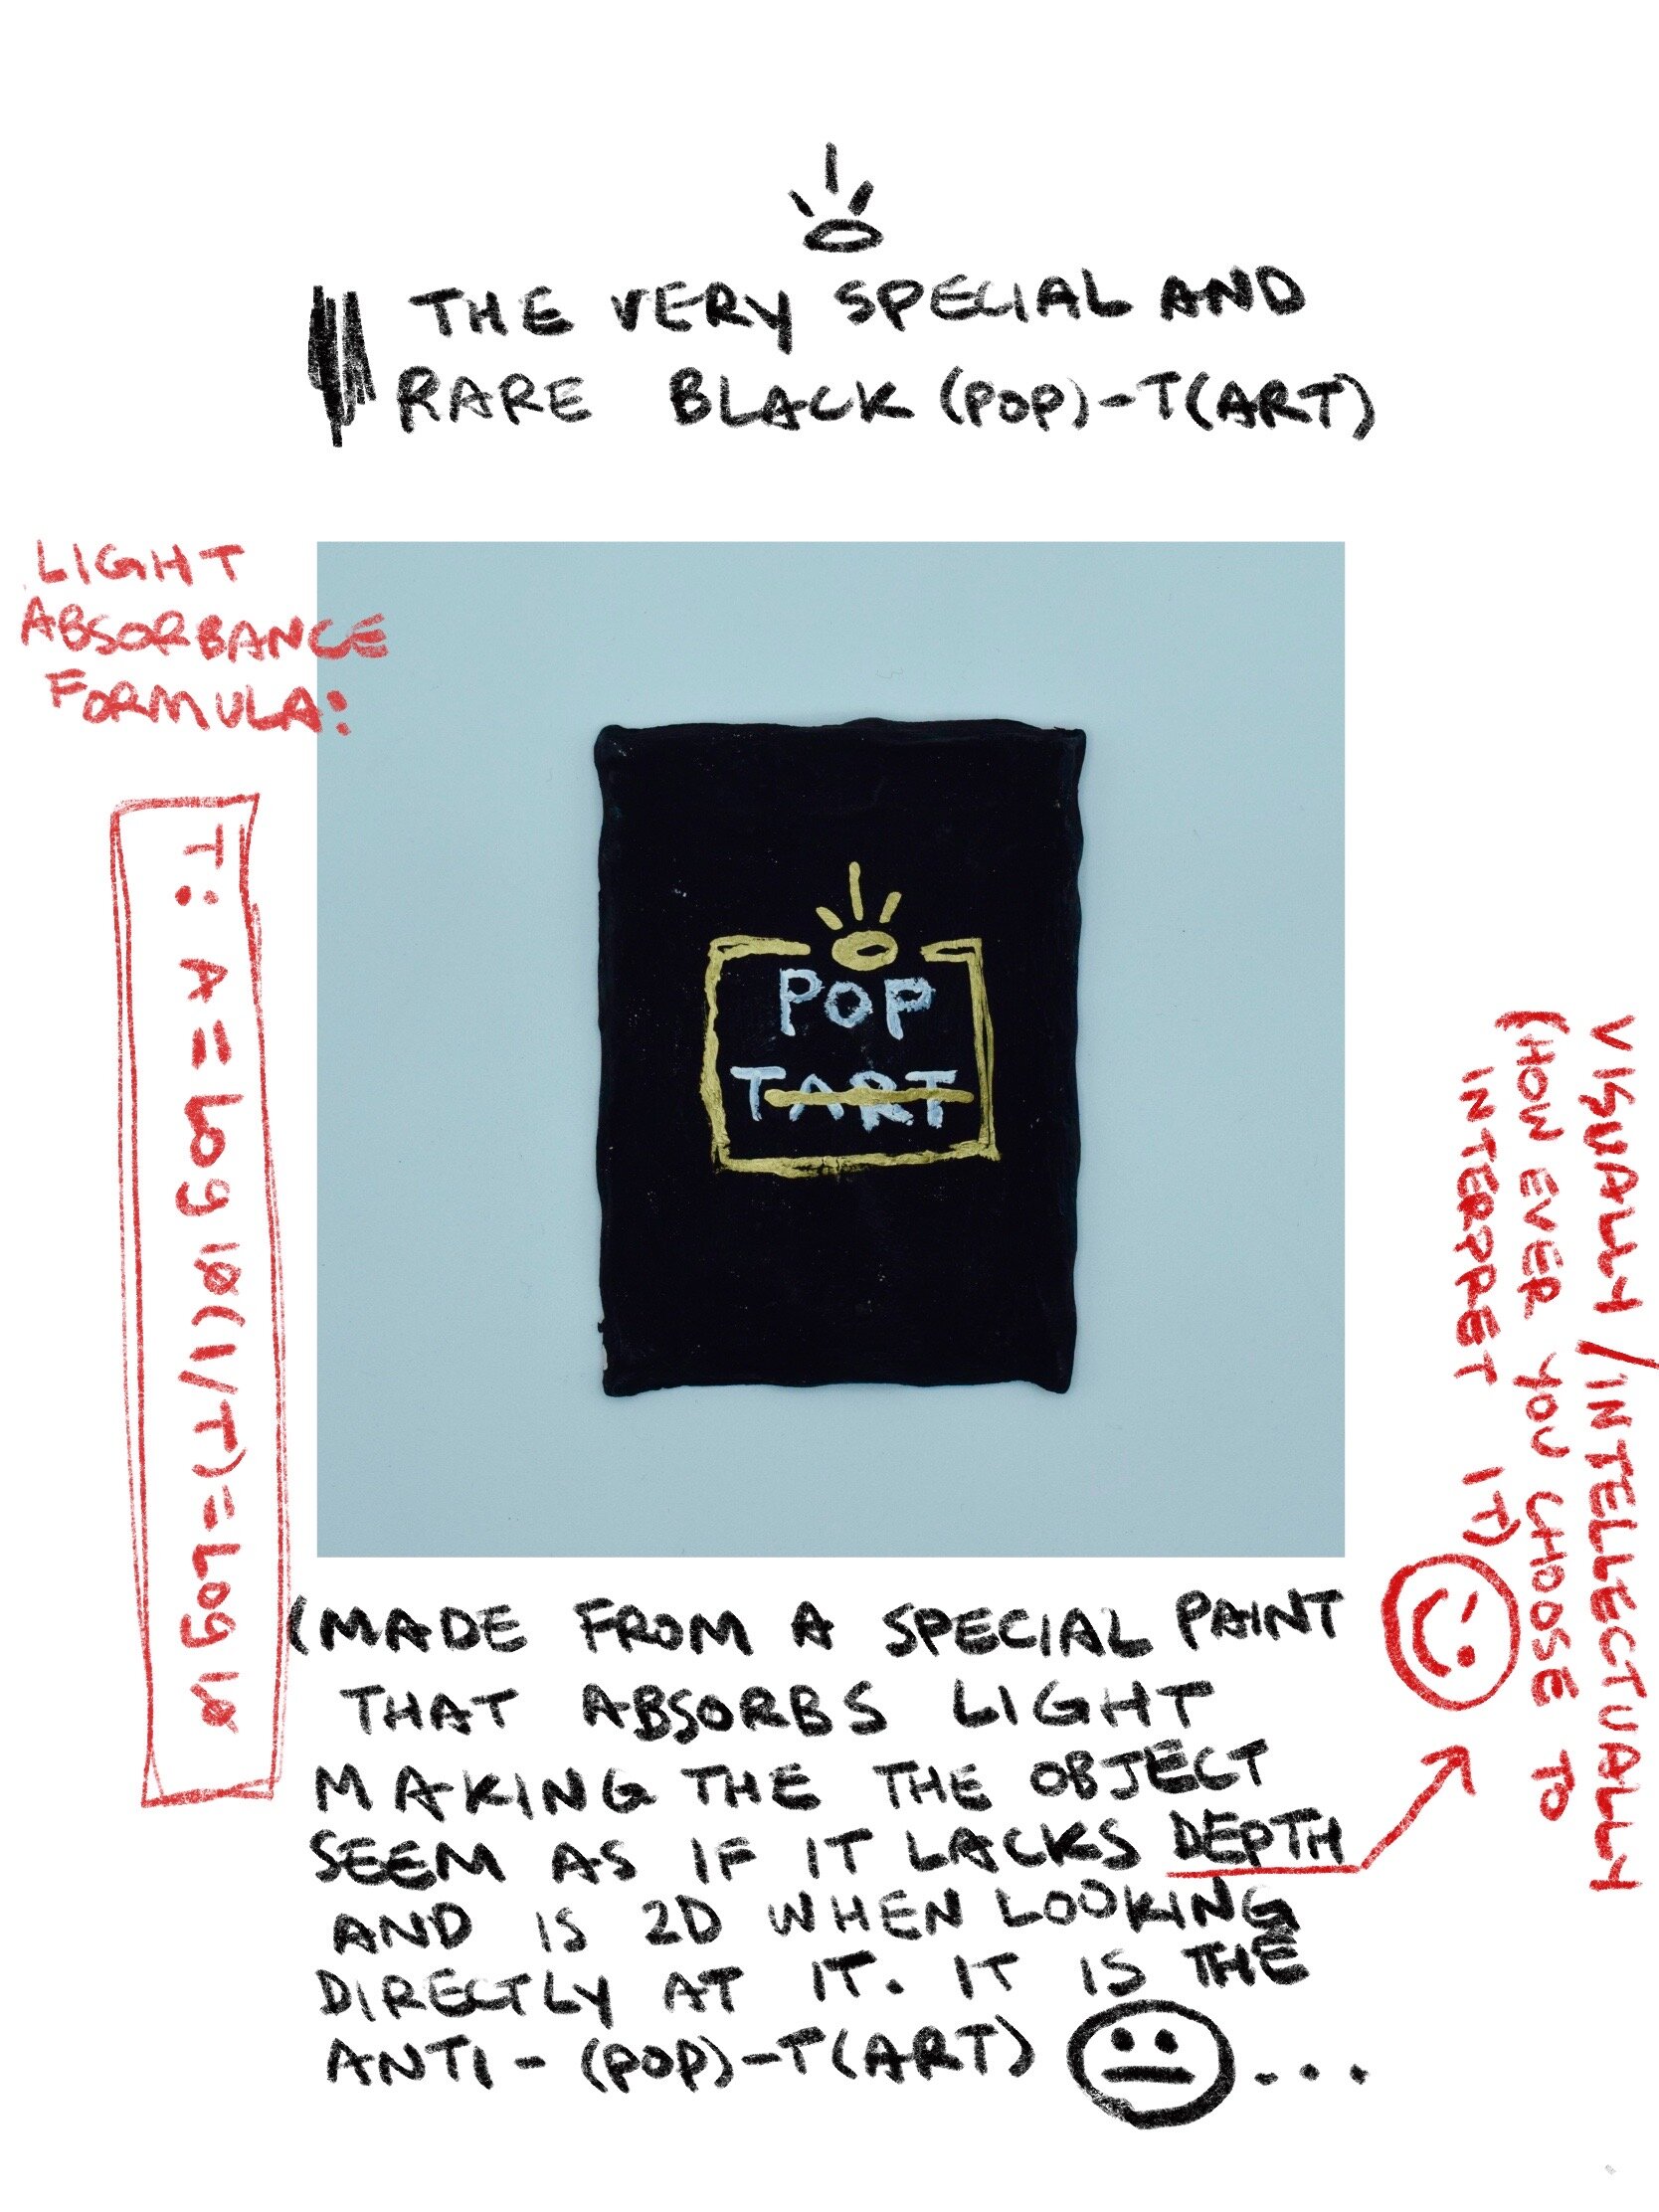 THE VERY SPECIAL AND
RARE BLACK (POP)-T(ART)
LIGHT
ABSORBANCE
FORMULA:
T: A = LOg 10(1/T) = LOg 10
POP
TART
(MADE FROM A SPECIAL PAINT
THAT ABSORBS LIGHT
MAKING THE THE OBJECT
SEEM AS IF IT LACKS DEPTH
AND IS 2D WHEN LOOKING
DIRECTLY AT IT. IT IS THE
ANTI-(POP)-T(ART) ...
VISUALLY/INTELLECTUALLY
(HOW EVER YOU CHOOSE TO
INTERPRET IT)